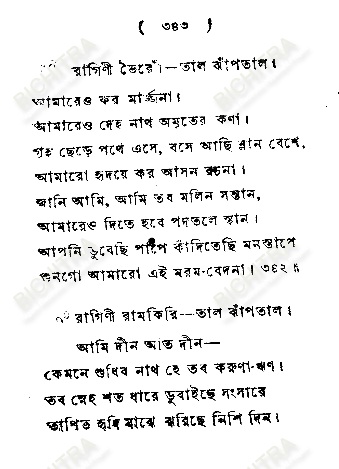 ( ৩৪৩ )
রাগিণী ভৈরোঁ।—তাল ঝাঁপতাল।
আমারেও কর মার্জ্জনা।
আমারেও দেহ নাথ অমৃতের কণা।
গৃহ ছেড়ে পথে এসে, বসে আছি ম্লান বেশে,
আমারো হৃদয়ে কর আসন রচনা।
জানি আমি, আমি তব মলিন সন্তান,
আমারেও দিতে হবে পদতলে স্থান।
আপনি ডুবেছি পাপে কাঁদিতেছি মনস্তাপে
শুনগো আমারো এই মরম-বেদনা। ৩৪২॥
রাগিণী রামকিরি—তাল ঝাঁপতাল।
আমি দীন অতি দীন—
কেমনে শুধিব নাথ হে তব করুণা-ঋণ।
তব স্নেহ শত ধারে ডুবাইছে সংসারে
তাপিত হৃদি মাঝে ঝরিছে নিশি দিন।